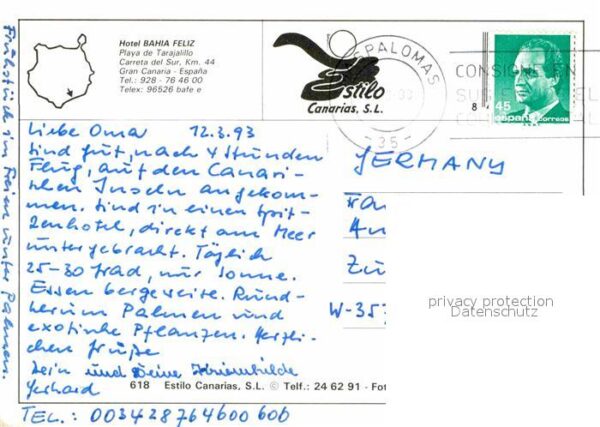 Hotel BAHIA FELIZ
Playa de Tarajalillo
Carreta del Sur, Km. 44
Gran Canaria - España
Tel.: 928 - 76 46 00
Telex: 96526 bafe e
Estilo
Canarias, S.L.
SPALOMAS
CONSIGNE EN
SUS E EL
-35-
8
45
españa correos
Liebe Oma 12.3.93
Sind gut, nach 4 Stunden
Flug, auf den Canari-
schen Inseln angekom-
men. Sind in einen Spit-
zenhotel, direkt am Meer
untergebracht. Täglich
25-30 Grad, nur Sonne.
Essen bergeweise. Rund-
herum Palmen und
exotische Pflanzen. Herzli-
chen Grüße
Dein und Deine Schwiemhilde
Gerhard
TEL.: 0034 28 764600 600
Frühstück im Freien unter Palmen.
GERMANY
Fra
An
Zu
W-357
privacy protection
Datenschutz
618 Estilo Canarias, S.L. © Telf.: 24 62 91 - Fot